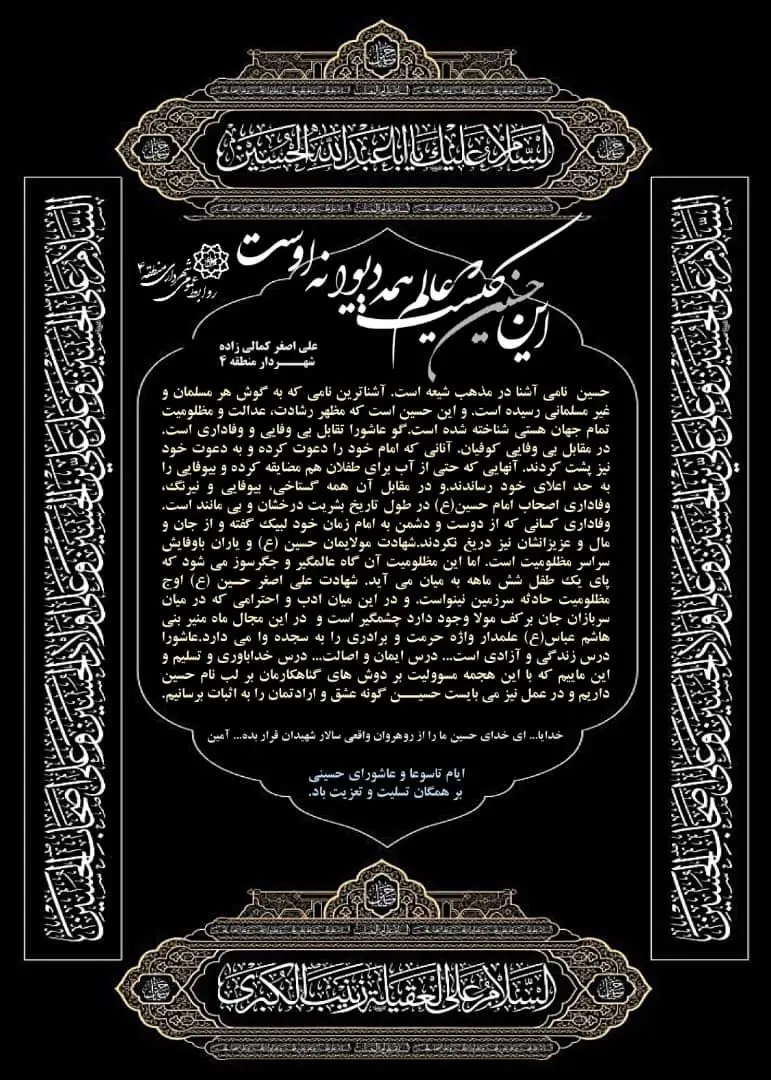 السلام علیك یا اباعبدالله الحسین
این حسین کیست که عالم همه دیوانه اوست
روابط عمومی شهرداری منطقه ۴
علی اصغر کمالی زاده
شهردار منطقه ۴
حسین نامی آشنا در مذهب شیعه است. آشناترین نامی که به گوش هر مسلمان و
غیر مسلمانی رسیده است. و این حسین است که مظهر رشادت، عدالت و مظلومیت
تمام جهان هستی شناخته شده است.گو عاشورا تقابل بی وفایی و وفاداری است.
در مقابل بی وفایی کوفیان. آنانی که امام خود را دعوت کرده و به دعوت خود
نیز پشت کردند. آنهایی که حتی از آب برای طفلان هم مضایقه کرده و بیوفایی را
به حد اعلای خود رساندند.و در مقابل آن همه گستاخی، بیوفایی و نیرنگ،
وفاداری اصحاب امام حسین(ع) در طول تاریخ بشریت درخشان و بی مانند است.
وفاداری کسانی که از دوست و دشمن به امام زمان خود لبیک گفته و از جان و
مال و عزیزانشان نیز دریغ نکردند.شهادت مولایمان حسین (ع) و یاران باوفایش
سراسر مظلومیت است. اما این مظلومیت آن گاه عالمگیر و جگرسوز می شود که
پای یک طفل شش ماهه به میان می آید. شهادت علی اصغر حسین (ع) اوج
مظلومیت حادثه سرزمین نینواست. و در این میان ادب و احترامی که در میان
سربازان جان برکف مولا وجود دارد چشمگیر است و در این مجال ماه منیر بنی
هاشم عباس(ع) علمدار واژه حرمت و برادری را به سجده وا می دارد.عاشورا
درس زندگی و آزادی است... درس ایمان و اصالت... درس خداباوری و تسلیم و
این ماییم که با این هجمه مسوولیت بر دوش های گناهکارمان بر لب نام حسین
داریم و در عمل نیز می بایست حسیـــن گونه عشق و ارادتمان را به اثبات برسانیم.
خدایا... ای خدای حسین ما را از روهروان واقعی سالار شهیدان قرار بده... آمین
ایام تاسوعا و عاشورای حسینی
بر همگان تسلیت و تعزیت باد.
السلام علی الحسین و علی علی ابن الحسین و علی اولاد الحسین و علی اصحاب الحسین
السلام علی الحسین و علی علی ابن الحسین و علی اولاد الحسین و علی اصحاب الحسین
السلام علی العقیلة زینب الکبری